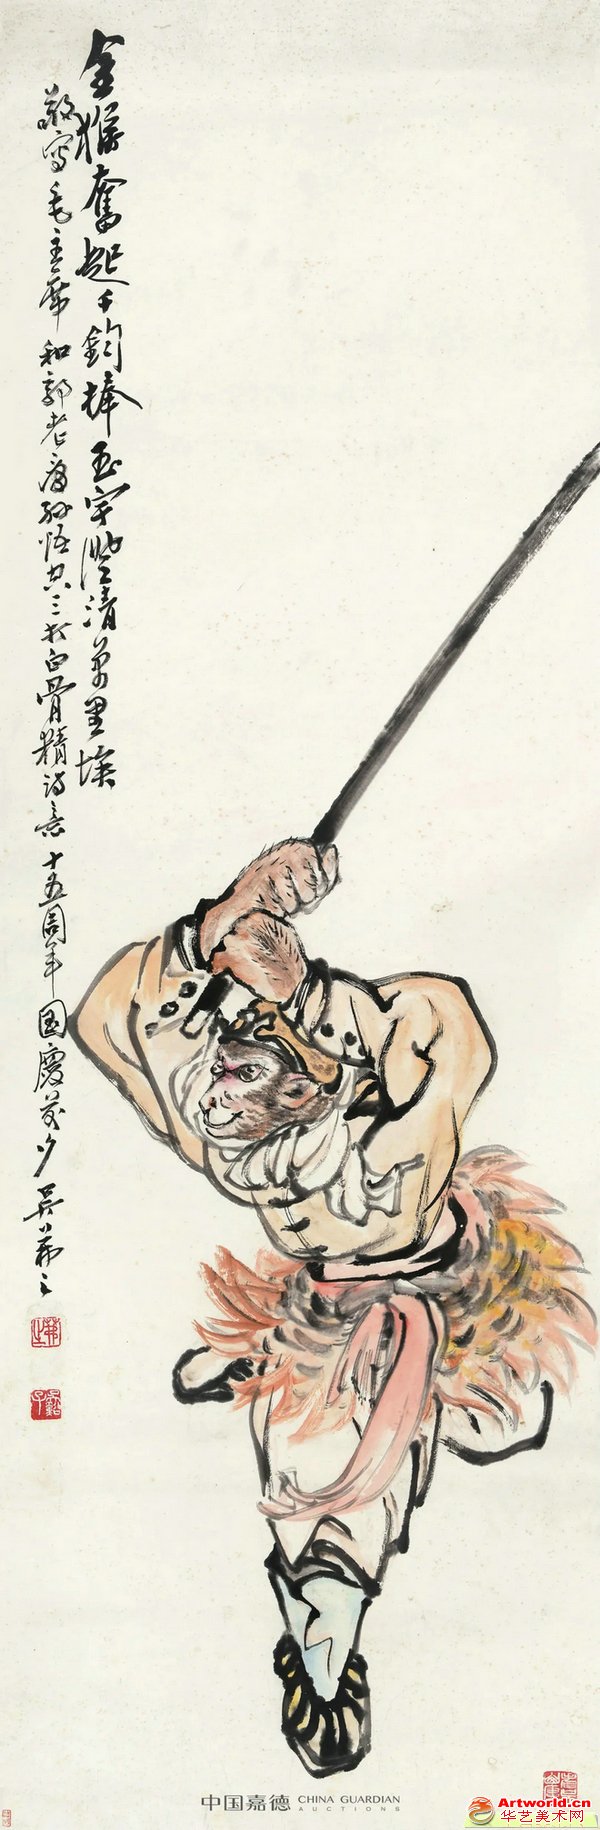 金猴奮起千鈞棒玉宇澄清萬里埃
敬寫毛主席和郭老看孙悟空三打白骨精诗意十五周年国慶前夕吴茀之
茀之
中国嘉德 CHINA GUARDIAN
AUCTIONS
Artworld.cn
华艺美术网